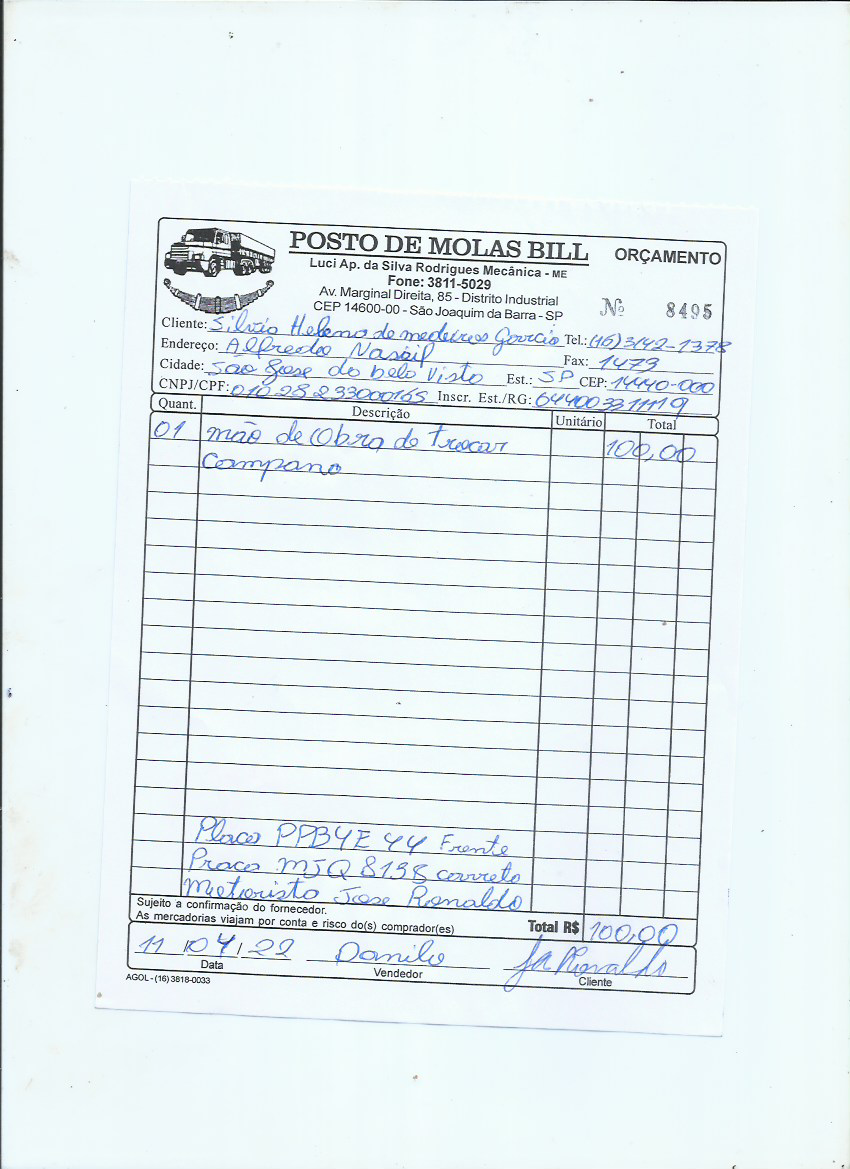 POSTO DE MOLAS BILL
ORÇAMENTO
Luci Ap. da Silva Rodrigues Mecânica - ME
Fone: 3811-5029
Av. Marginal Direita, 85 - Distrito Industrial
CEP 14600-00 - São Joaquim da Barra - SP
Nº 8495
Cliente: Silvio Heleno de medeiros Garcia Tel.: (16) 3142-1378
Endereço: Alfredo Nassif Fax: 1479
Cidade: Sao Jose do belo Visto Est.: SP CEP: 14440-000
CNPJ/CPF: 01028233000165 Inscr. Est./RG: 644003311119
Quant. Descrição Unitário Total
01 mão de Obra de trocar 100,00
Campano
Placa PPB4E44 Frente
Praca MJQ 8138 carreta
Motoristo Jose Ronaldo
Sujeito a confirmação do fornecedor.
As mercadorias viajam por conta e risco do(s) comprador(es)
Total R$ 100,00
11 / 04 / 22 Danilo Ronaldo
Data Vendedor Cliente
AGOL - (16) 3818-0033